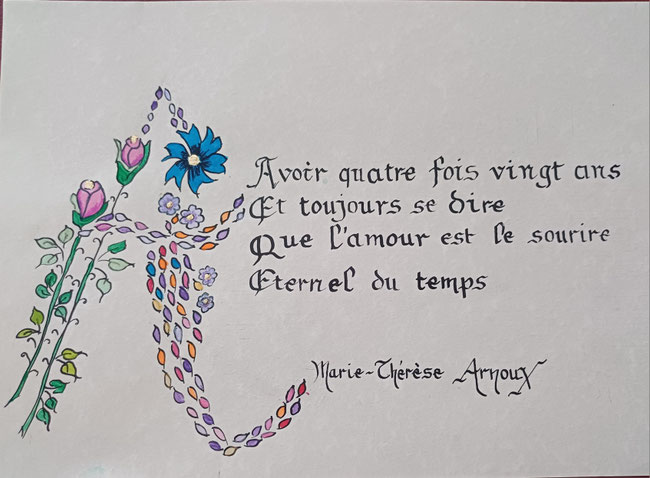 Avoir quatre fois vingt ans
Et toujours se dire
Que l'amour est le sourire
Eternel du temps
Marie-Thérèse Arnoux